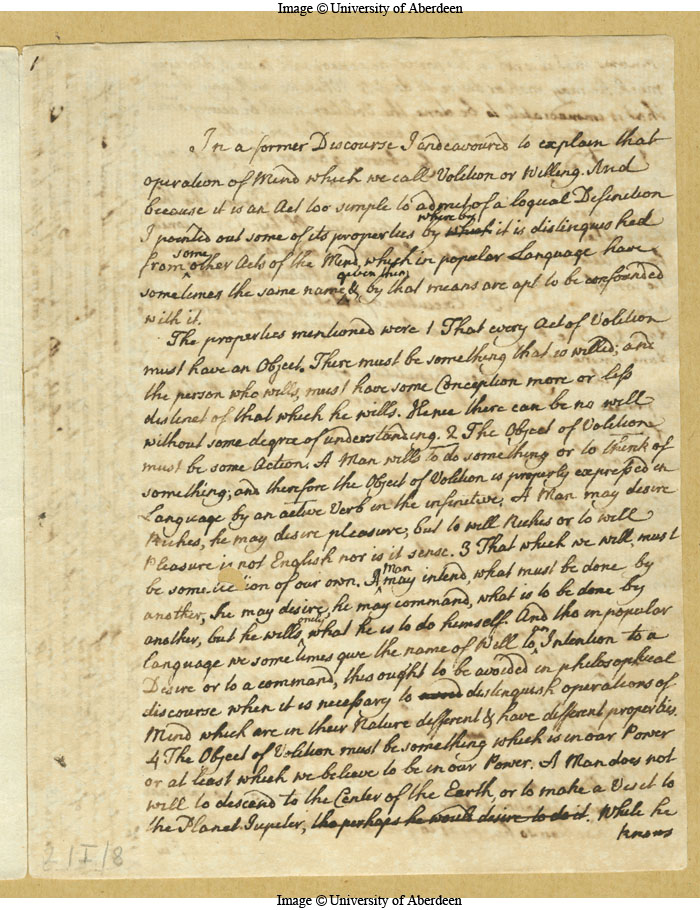 Image © University of Aberdeen
1
In a former Discourse I endeavoured to explain that
operation of Mind which we call Volition or Willing. And
because it is an Act too simple to admit of a logical Definition
where by
I pointed out some of its properties by which it is distinguished
some
from other Acts of the Mind, which in popular Language have
given them
sometimes the same name & by that means are apt to be confounded
with it.
The properties mentioned were 1 That every Act of Volition
must have an Object. There must be something that is willed; and
the person who wills, must have some Conception more or less
distinct of that which he wills. Hence there can be no will
without some degree of understanding. 2 The Object of Volition
must be some Action. A Man wills to do something or to think of
something; and therefore the Object of Volition is properly expressed in
Language by an active Verb in the infinitive. A Man may desire
Riches, he may desire pleasure, but to will Riches or to will
Pleasure is not English nor is it sense. 3 That which we will, must
Man
be some ion of our own. A may intend, what must be done by
another, he may desire, he may command, what is to be done by
only
another, but he wills what he is to do himself. And tho in popular
an
Language we sometimes give the name of Will to Intention to a
Desire or to a command, this ought to be avoided in philosophical
discourse when it is necessary to distinguish operations of
Mind which are in their Nature different & have different properties.
4 The Object of Volition must be something which is in our Power
or at least which we believe to be in our Power. A Man does not
will to descend to the Center of the Earth, or to make a Visit to
the Planet Jupiter, tho perhaps he would desire to do it. While he
knows
2/I/8
Image © University of Aberdeen